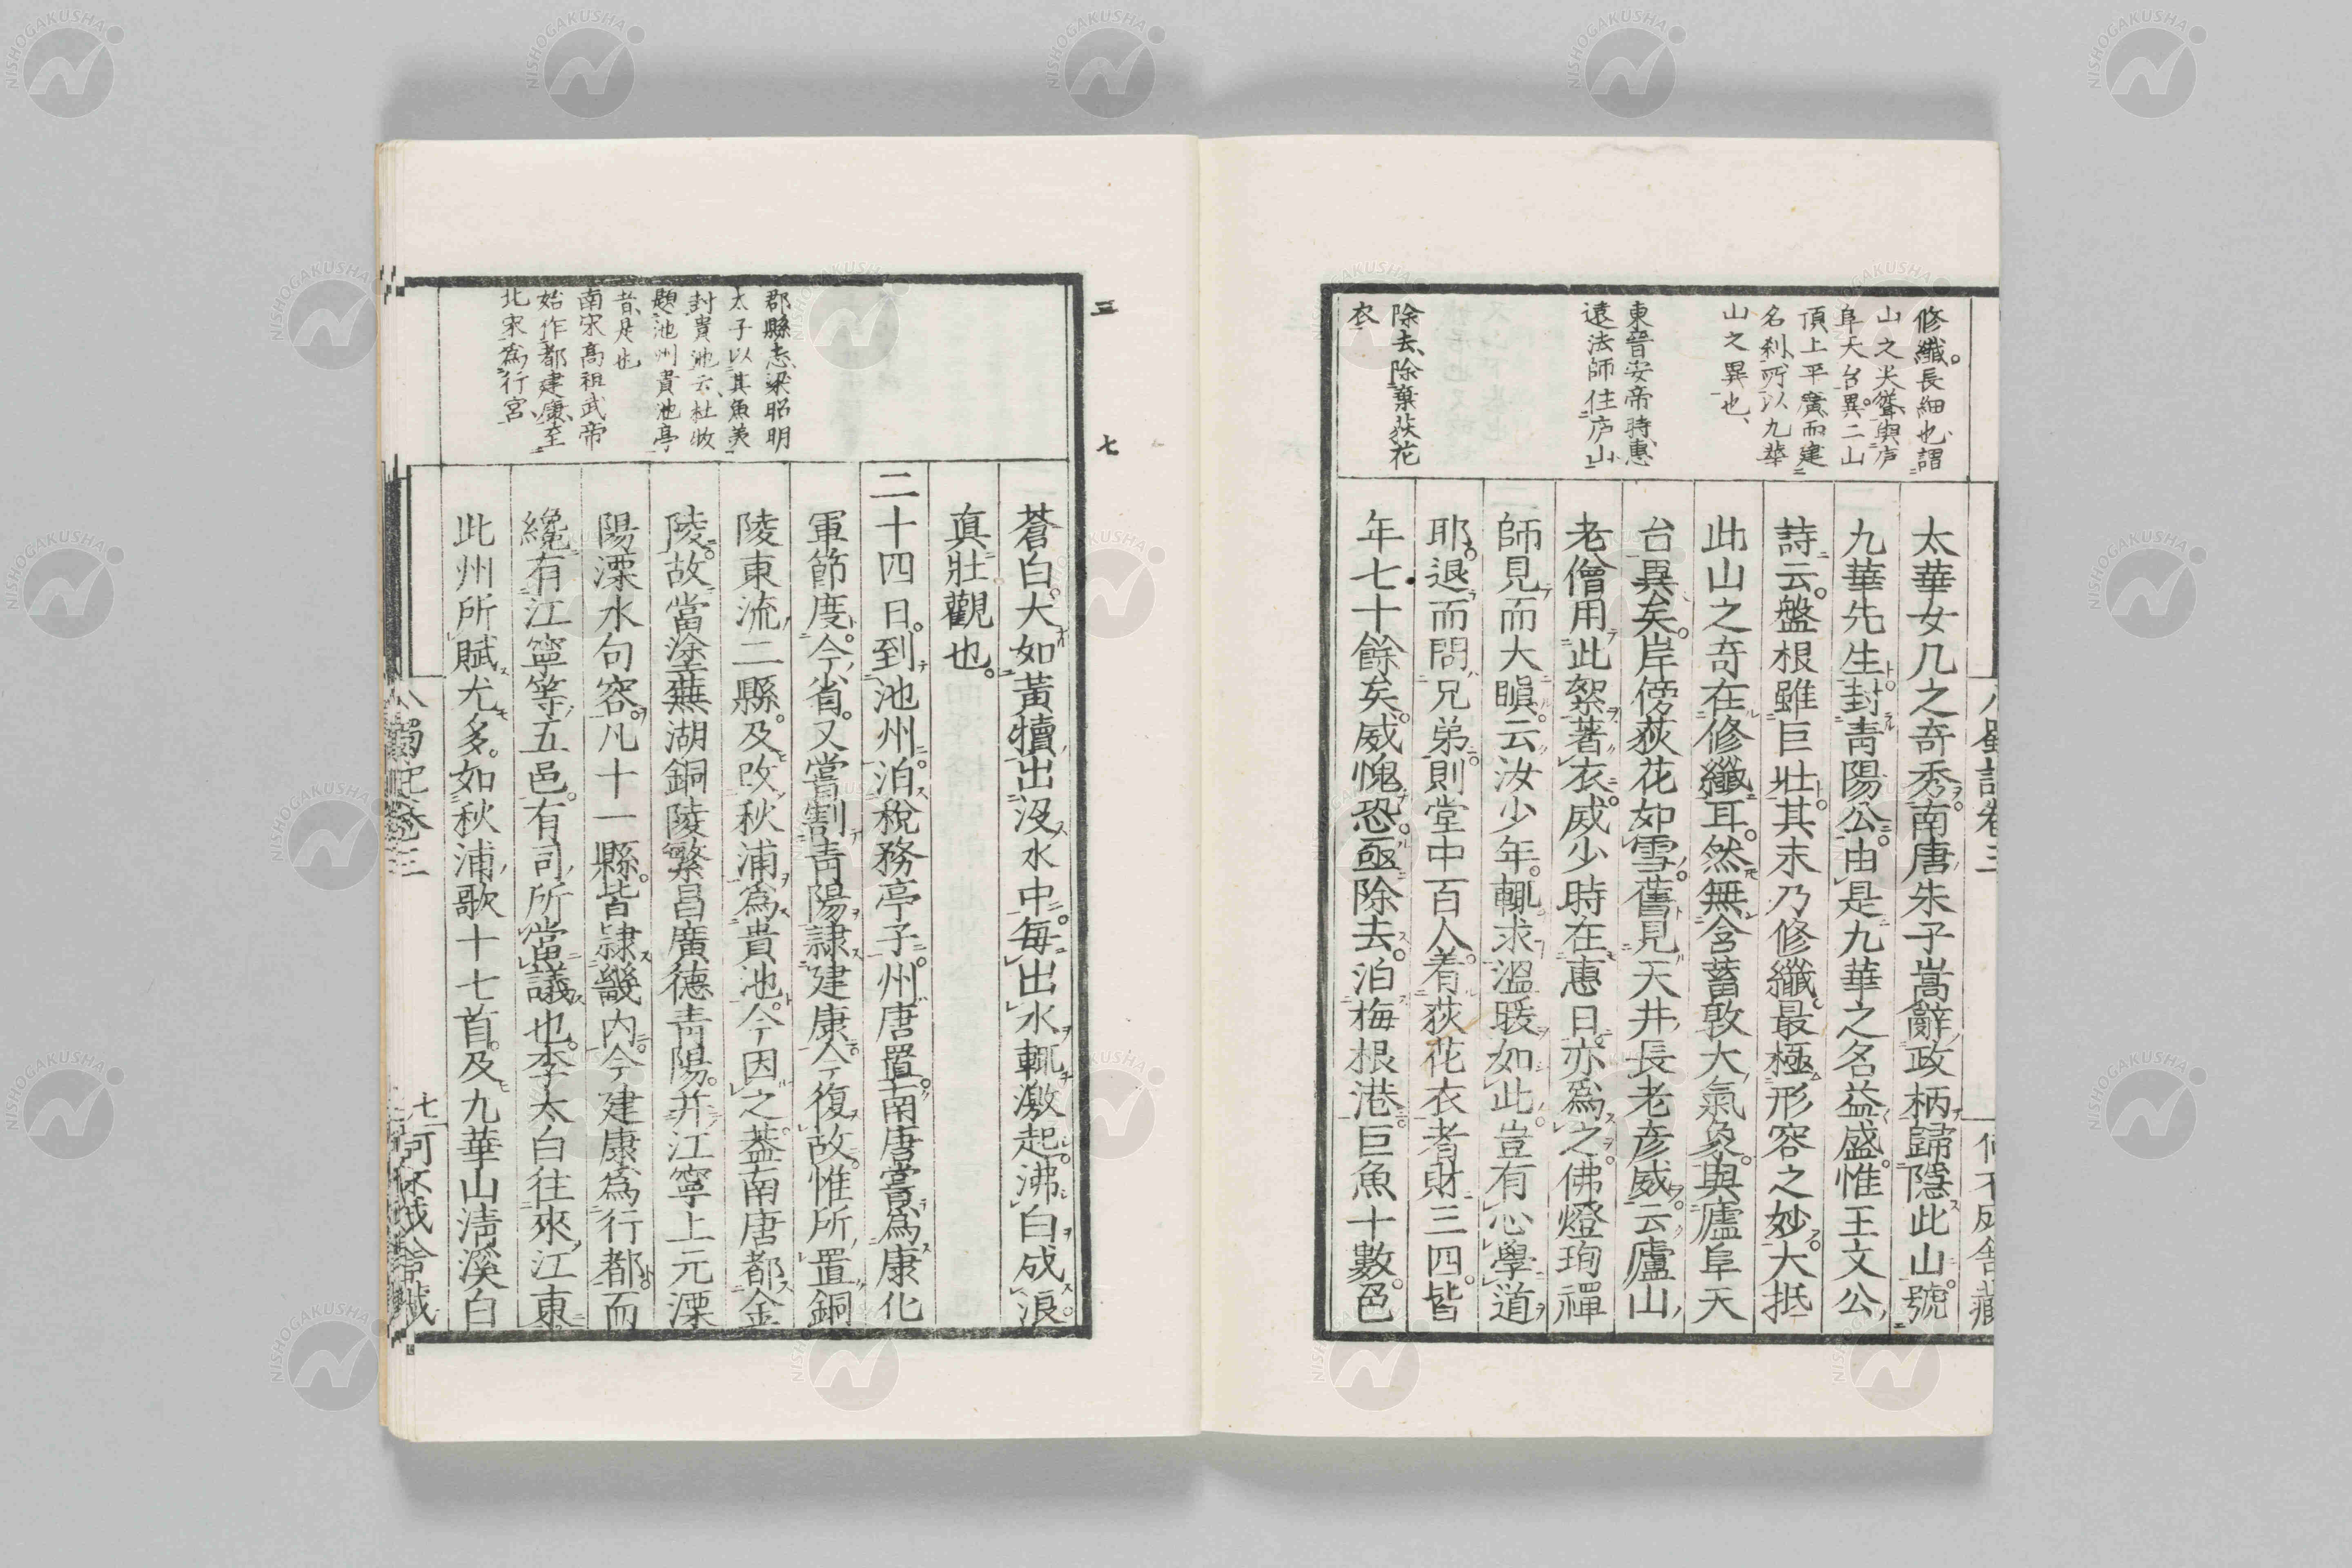 修纖長細也謂
山之尖聳與庐
阜天台異二山
頂上平廣而建
名刹所以九華
山之異也
東晉安帝時惠
遠法師住庐山
除去除棄荻花
衣
太華女几之奇秀南唐朱子嵩辭政柄歸隱此山號
九華先生封靑陽公由是九華之名益盛惟王文公
詩云盤根雖巨壯其末乃修纖最極形容之妙大抵
此山之奇在修纖耳然無含蓄敦大氣象與廬阜天
台異矣岸傍荻花如雪舊見天井長老彦威云廬山
老僧用此絮著衣威少時在惠日亦爲之佛燈珣禪
師見而大瞋云汝少年輒求溫暖如此豈有心學道
耶退而問兄弟則堂中百人着荻花衣者財三四皆
年七十餘矣威愧恐亟除去泊梅根港巨魚十數色
三 七
郡縣志梁昭明
太子以其魚美
封貴池云杜牧
題池州貴池亭
昔是也
南宋高祖武帝
始作都建康至
北宋爲行宮
蒼白大如黃犢出沒水中每出水輒激起沸白成浪
真壯觀也
二十四日到池州泊稅務亭子州唐置南唐嘗爲康化
軍節度今省又嘗割靑陽隷建康今復故惟所置銅
陵東流二縣及改秋浦爲貴池今因之蓋南唐都金
陵故當塗蕪湖銅陵繁昌廣德靑陽并江寧上元溧
陽溧水句容凡十一縣皆隷畿內今建康爲行都而
纔有江寧等五邑有司所當議也李太白往來江東
此州所賦尤多如秋浦歌十七首及九華山淸溪白
七